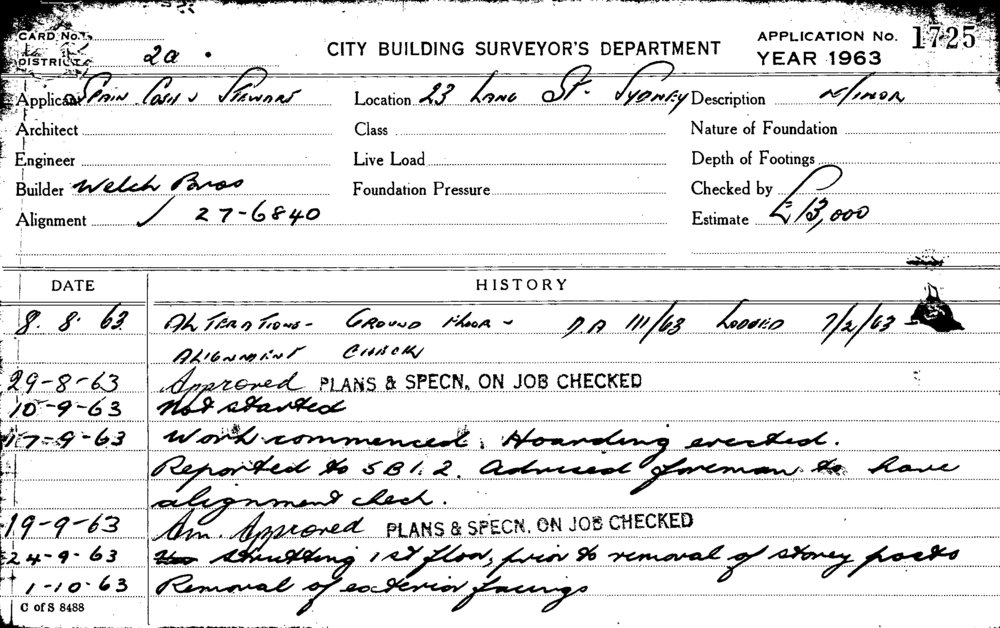 CARD No. 1.
CITY BUILDING SURVEYOR'S DEPARTMENT
APPLICATION No. 1725
DISTRICT 2a
YEAR 1963
Applicant Spain Cosh & Stewart Location 23 Lang St. Sydney Description Minor
Architect Class Nature of Foundation
Engineer Live Load Depth of Footings
Builder Welch Bros Foundation Pressure Checked by
Alignment ✓ 27-6840 Estimate £13,000
DATE HISTORY
8. 8. 63 ALTERATIONS - GROUND FLOOR - DA 111/63 LODGED 7/2/63
ALIGNMENT CHECK
29-8-63 Approved PLANS & SPECN. ON JOB CHECKED
10-9-63 Not started
17-9-63 Work commenced. Hoarding erected.
Reported to SBI. 2. Advised foreman to have
alignment check.
19-9-63 Am. Approved PLANS & SPECN. ON JOB CHECKED
24-9-63 Strutting 1st floor, prior to removal of storey posts
1-10-63 Removal of exterior facings
C of S 8488